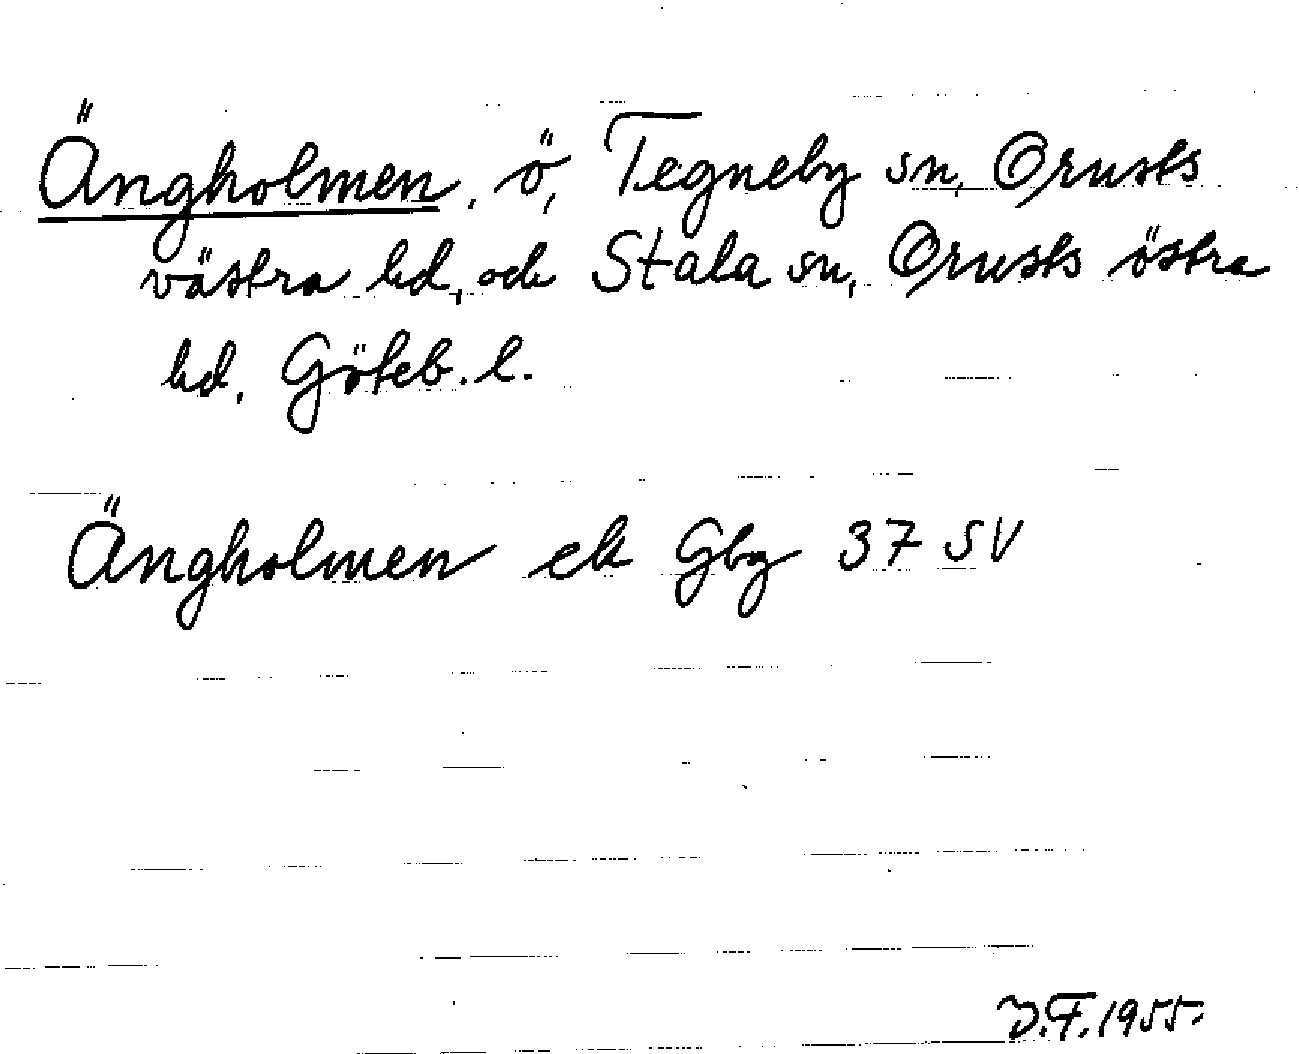 Ängholmen, ö, Tegneby sn, Orusts
västra hd, och Stala sn, Orusts östra
hd, Göteb. l.
Ängholmen ek Gbg 37 SV
D.F. 1955.